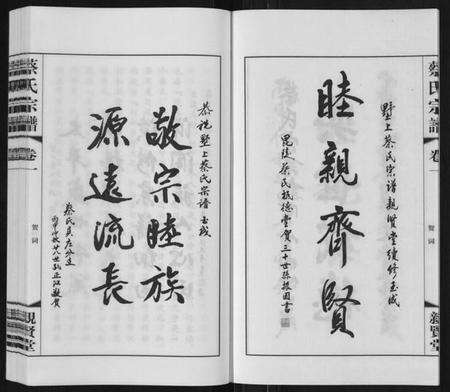 墅上蔡氏宗譜親賢堂續修玉成
睦親齊賢
毘陵蔡氏祗德堂賀三十世孫振国書
恭祝墅上蔡氏宗譜玉成
敬宗睦族
源遠流長
蔡氏貞左公支
蔡氏宗譜
卷一
賀詞
親賢堂
蔡氏宗譜
卷一
賀詞
親賢堂